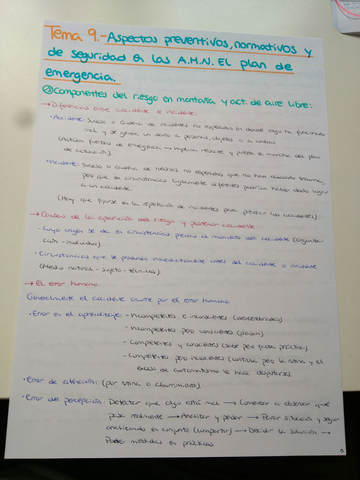 Tema 9.- Aspectos preventivos, normativos y
de seguridad en las A.M.N. El plan de
emergencia.
Componentes del riesgo en montaña y act. de aire libre:
→ Diferencia entre accidente e incidente:
· Accidente: Suceso o cadena de incidentes no esperados en donde algo ha funcionado
mal y se genera un daño a personas, objetos o a ambos
(Activar fuerzas de emergencia → implica rescate y puesta en marcha del plan
de actuación).
· Incidente: Suceso o cadena de hechos no esperados que no han causado trauma,
pero que en circunstancias ligeramente diferentes podrían haber dado lugar
a un accidente.
(Hay que fijarse en la repetición de incidentes para prever los accidentes).
→ Causas de la aparición del riesgo y posterior accidente:
· Cuyo origen se da en circunstancias previas al momento del accidente (organiza-
ción - individuos).
· Circunstancias que se producen inmediatamente antes del accidente o incidente
(Medio natural - sujeto - técnicas).
→ El error humano:
Generalmente el accidente ocurre por el error humano.
· Error en el aprendizaje: - Incompetentes e inconscientes
- Incompetentes pero conscientes
- Competentes y conscientes
- Competentes pero inconscientes (continua pero la rutina y el
exceso de automatismo se hace
· Error de atención: (por rutina o aburrimiento).
· Error de percepción: Detectar que algo está mal → Comenzar a observar qué
pasa realmente → Analizar y pensar → Parar situación y seguir
analizando en conjunto (compartir) → Decidir la solución →
Poner medidas en práctica.